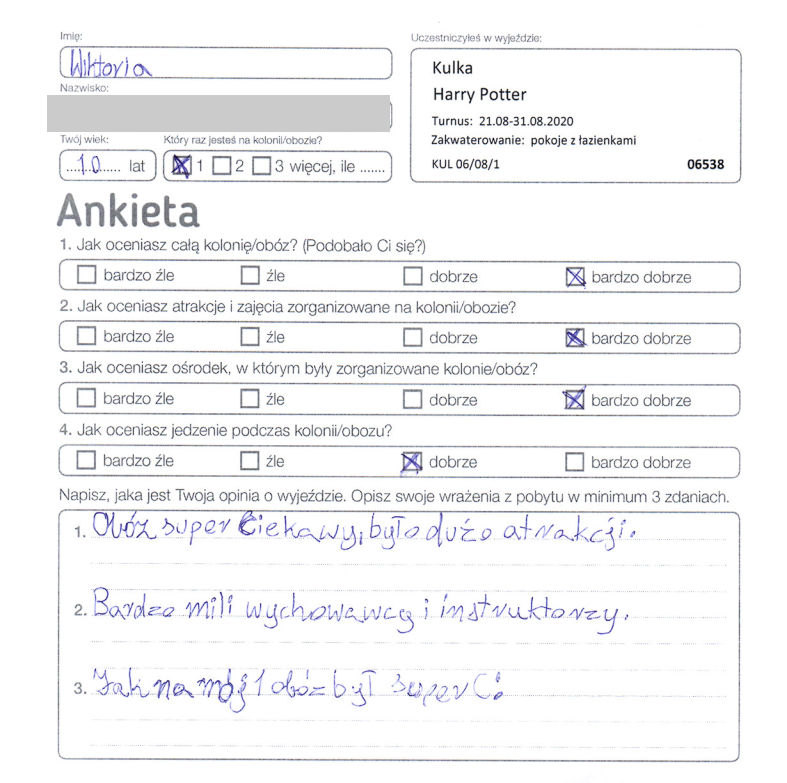 Imię:
Wiktoria
Nazwisko:
Twój wiek:
Który raz jesteś na kolonii/obozie?
....10...... lat
1 2 3 więcej, ile .......
Uczestniczyłeś w wyjeździe:
Kulka
Harry Potter
Turnus: 21.08-31.08.2020
Zakwaterowanie: pokoje z łazienkami
KUL 06/08/1 06538
Ankieta
1. Jak oceniasz całą kolonię/obóz? (Podobało Ci się?)
bardzo źle źle dobrze bardzo dobrze
2. Jak oceniasz atrakcje i zajęcia zorganizowane na kolonii/obozie?
bardzo źle źle dobrze bardzo dobrze
3. Jak oceniasz ośrodek, w którym były zorganizowane kolonie/obóz?
bardzo źle źle dobrze bardzo dobrze
4. Jak oceniasz jedzenie podczas kolonii/obozu?
bardzo źle źle dobrze bardzo dobrze
Napisz, jaka jest Twoja opinia o wyjeździe. Opisz swoje wrażenia z pobytu w minimum 3 zdaniach.
1. Obóz super ciekawy, było dużo atrakcji.
2. Bardzo mili wychowawcy i instruktorzy.
3. Jak na mój 1 obóz był super (: